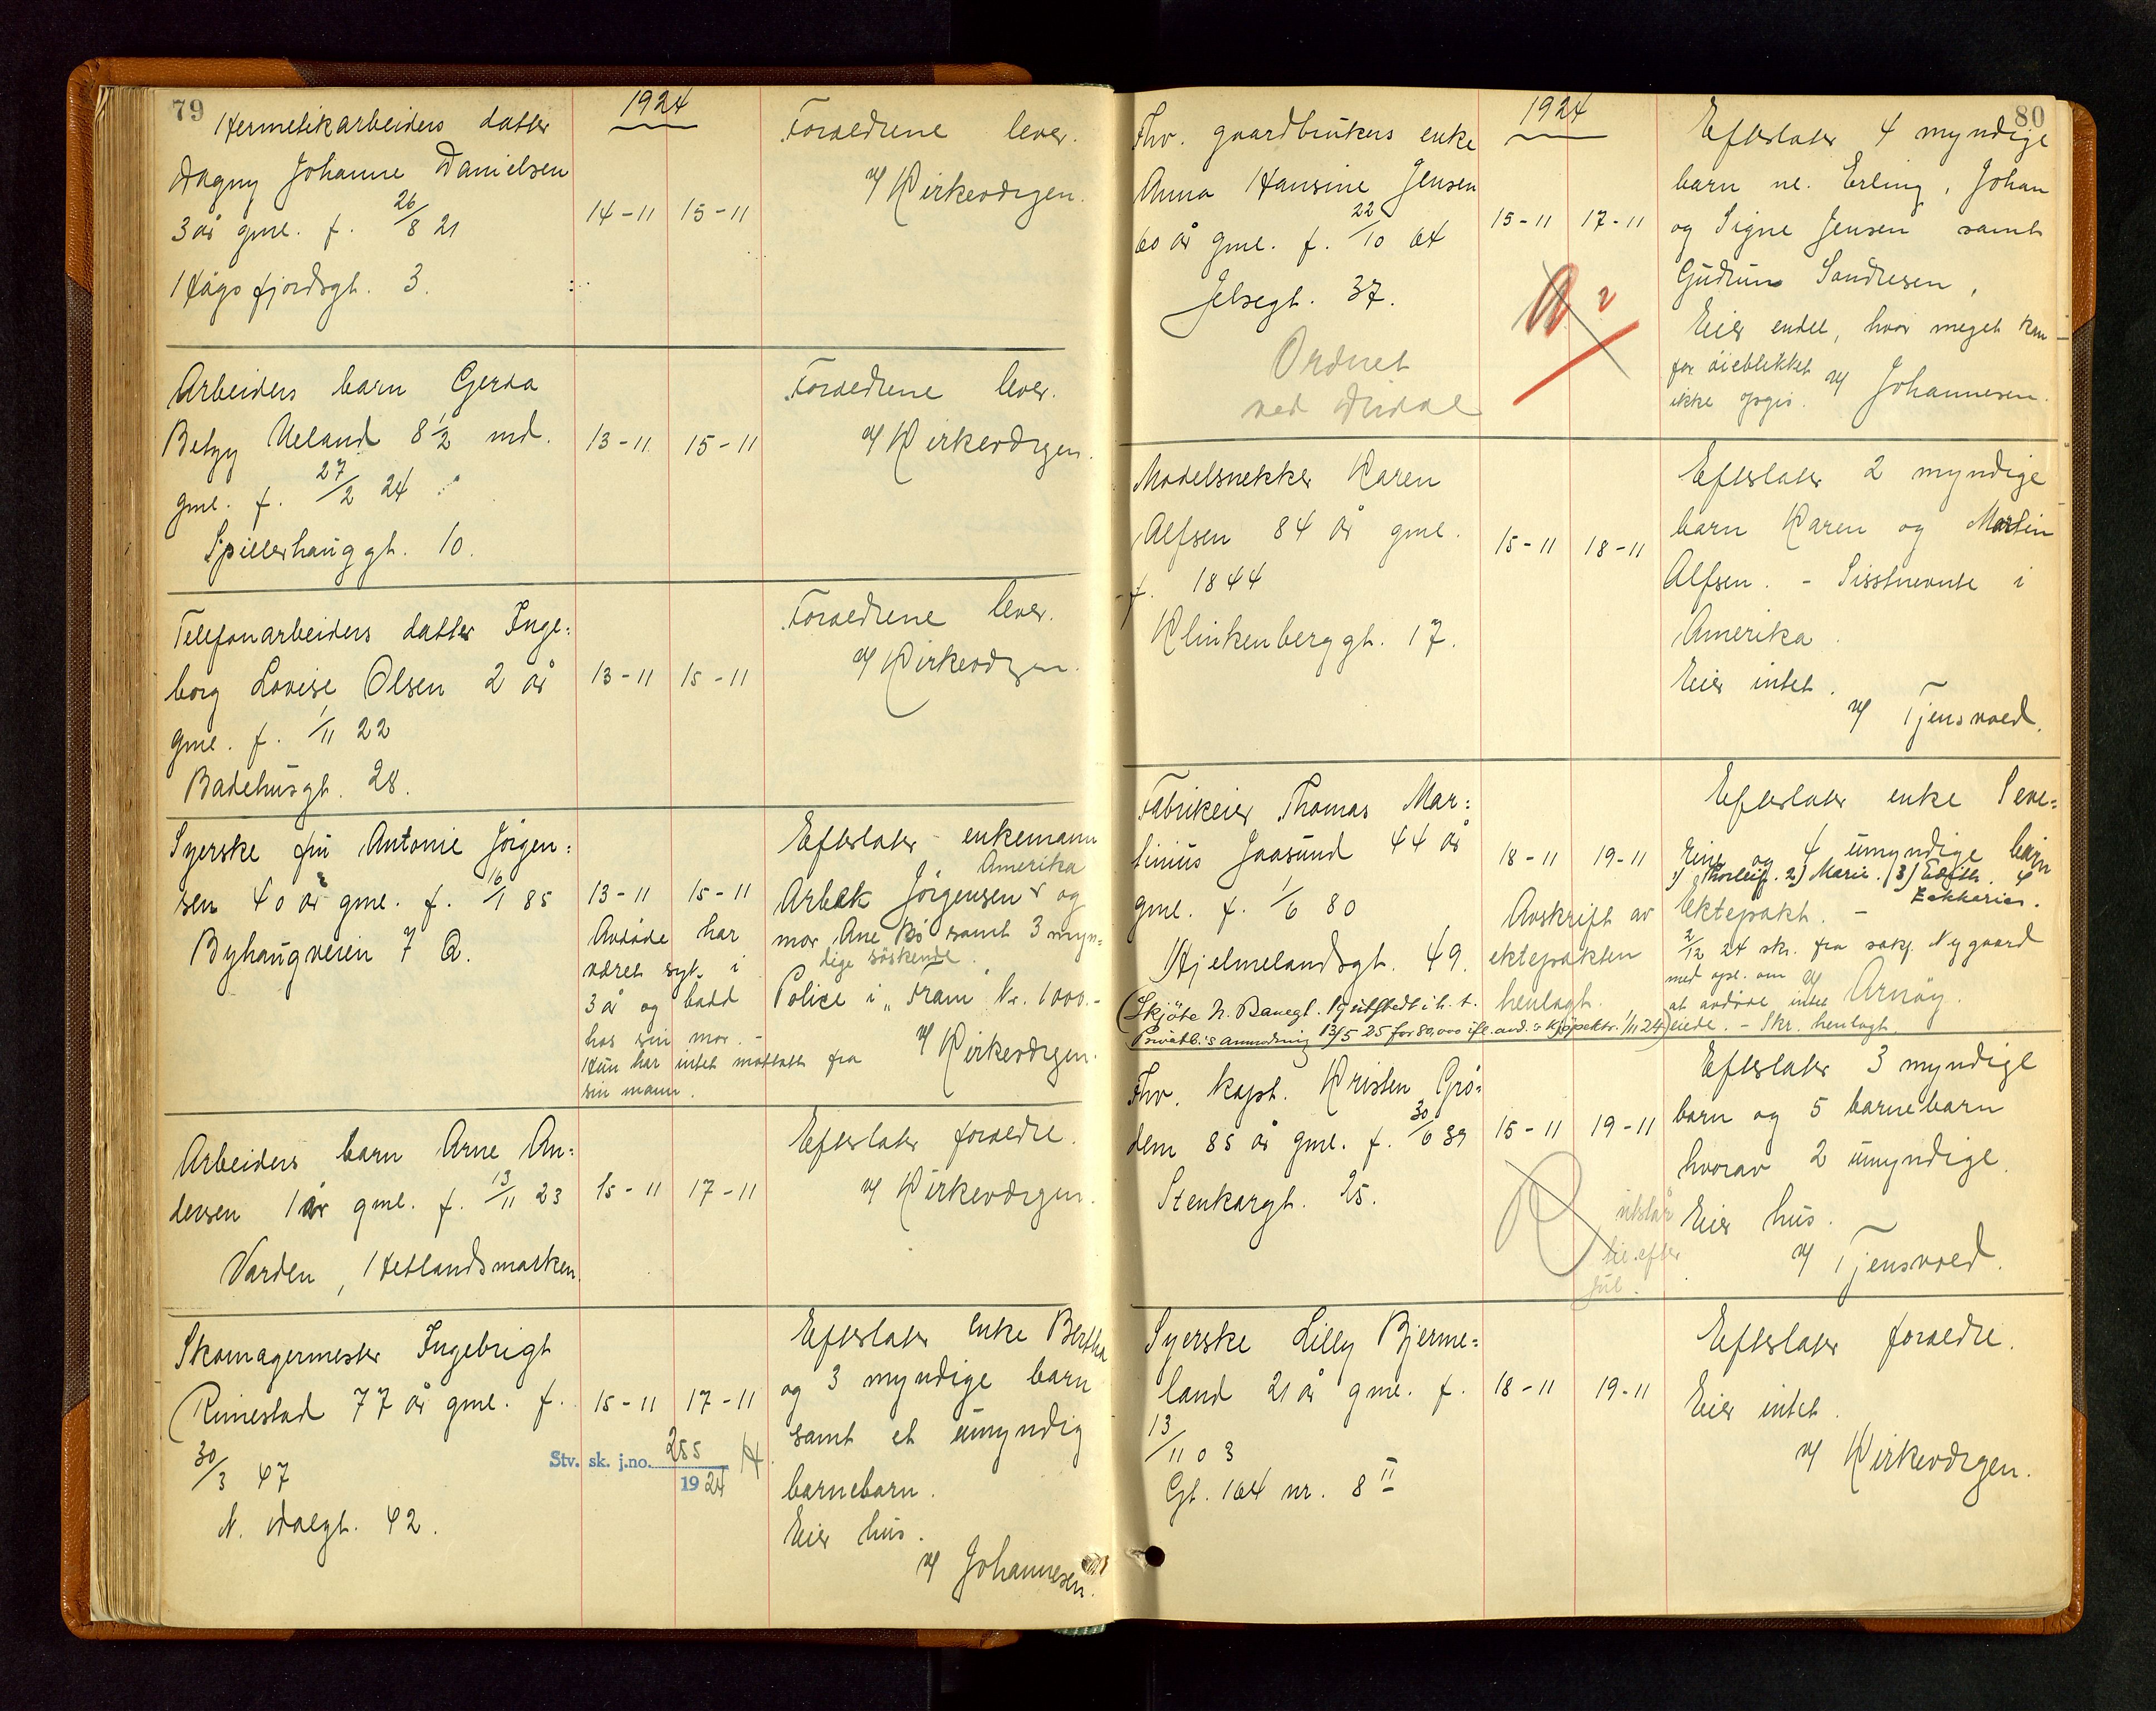 79
1924
Hermetikarbeiders datter
Dagny Johanne Danielsen
3 år gml. f. 26/8 21
Høgsfjordsgt. 3.
14-11 15-11
Foreldrene lever.
v/ Kirkevergen.
Arbeiders barn Gerda
Betzy Ueland 8 1/2 md.
gml. f. 27/2 24
Spillerhauggt. 10.
13-11 15-11
Foreldrene lever.
v/ Kirkevergen.
Telefonarbeiders datter Inge:
borg Lovise Olsen 2 år
gml. f. 1/11 22
Badehusgt. 28.
13-11 15-11
Foreldrene lever.
v/ Kirkevergen.
Syerske fru Antonie Jörgen:
sen 40 år gml. f. 16/1 85
Byhaugveien 7 a.
13-11 15-11
Avdøde har
været syk i
3 år og bodd
hos sin mor. -
Hun har intet mottatt fra
sin mann.
Efterlater enkemann
Amerika
Jörgensen og
mor Ane Bö samt 3 myn:
dige söskende.
Police i „Fram" kr. 1000.-
v/ Kirkevergen.
Arbeiders barn Arne An:
dersen 1 år gml. f. 13/11 23
Varden, Hetlandsmarken.
15-11 17-11
Efterlater foreldre.
v/ Kirkevergen.
Skomagermester Ingebrigt
Rimestad 77 år gml. f.
30/3 47
N. Dalgt. 42.
15-11 17-11
Stv. sk. j.no. 255
1924
Efterlater enke Bertha
og 3 myndige barn
samt et umyndig
barnebarn.
Eier hus.
v/ Johannesen.
80
1924
Fhv. gaardbrukers enke
Anna Hansine Jensen
60 år gml. f. 22/10 64
Jelsegt. 37.
Ordnet
ved
15-11 17-11
Efterlater 4 myndige
barn nl. Erling, Johan
og Signe Jensen samt
Gudrun Sandresen,
Eier endel, hvor meget kan
for öieblikket
ikke opgis. v/ Johannesen.
Modelsnekker Karen
Alfsen 84 år gml.
f. 1844
Klinkenberggt. 17.
15-11 18-11
Efterlater 2 myndige
barn Karen og Martin
Alfsen. - Sisstnevnte i
Amerika.
Eier intet.
v/ Tjensvold.
Fabrikeier Thomas Mar:
tinius Jaasund 44 år
gml. f. 1/6 80
Hjelmelandsgt. 49.
18-11 19-11
Avskrift av
ektepakten
henlagt.
Efterlater enke Seve:
rine og 4 umyndige barn
1) Thorleif. 2) Marie. (3) Edith. 4
Zakkarias.
Ektepakt. -
2/12 24 skr. fra sakf. Nygaard
med opl. om
at avdöde intet v/ Arnøy.
eiede. - Skr. henlagt.
(Skjöte N. Banegt. 19 utstedt i h. t.
Privatb.'s anmodning 13/5 25 for 80,000 ifl. avd.'s kjöpektr. 1/11 24)
Fhv. kapt. Kristen Grö:
dem 85 år gml. f. 30/6 39
Stenkargt. 25.
15-11 19-11
utstår
til efter
jul.
Efterlater 3 myndige
barn og 5 barnebarn
hvorav 2 umyndige.
Eier hus.
v/ Tjensvold.
Syerske Lilly Bjerme:
land 21 år gml. f.
13/11 03
Gt. 164 nr. 8 II
18-11 19-11
Efterlater foreldre.
Eier intet.
v/ Kirkevergen.